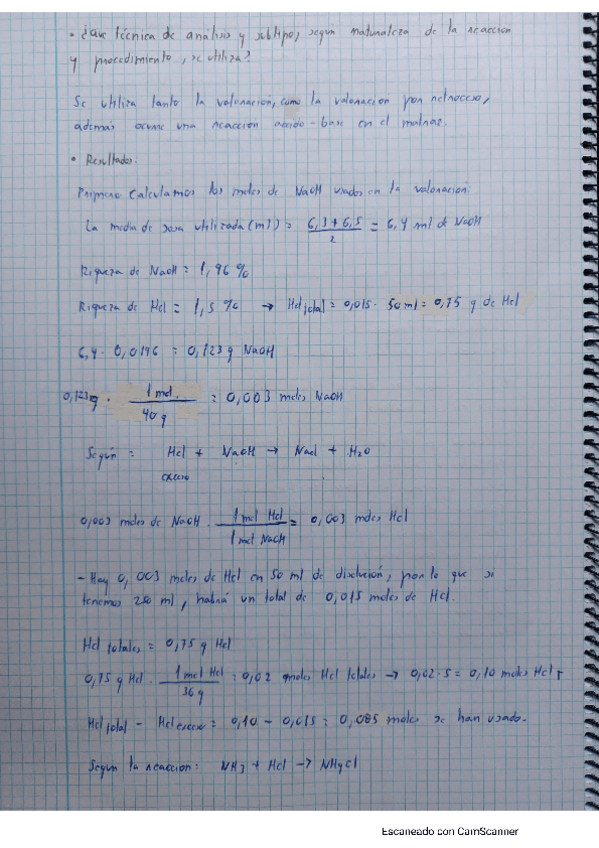 • ¿Que técnica de analisis y subtipo, según naturaleza de la reaccion
y procedimiento, se utiliza?
Se utiliza tanto la valoracion, como la valoracion por retroceso,
además ocurre una reaccion acido-base en el matraz.
• Resultados.
Primero calculamos los moles de NaOH usados en la valoracion:
La media de sosa utilizada (ml) = 6,3 + 6,5 / 2 = 6,4 ml de NaOH
Riqueza de NaOH = 1,96 %
Riqueza de Hcl = 1,5 % → Hcl total = 0,015 · 50 ml = 0,75 g de Hcl
6,4 · 0,0196 = 0,123 g NaOH
0,123 g · 1 mol / 40 g = 0,003 moles NaOH
Según : Hcl + NaOH → Nacl + H2O
exceso
0,003 moles de NaOH · 1 mol Hcl / 1 mol NaOH = 0,003 moles Hcl
- Hay 0,003 moles de Hcl en 50 ml de disolución, por lo que si
tenemos 250 ml, habrá un total de 0,015 moles de Hcl.
Hcl totales = 0,75 g Hcl
0,75 g Hcl · 1 mol Hcl / 36 g = 0,02 moles Hcl totales → 0,02 · 5 = 0,10 moles Hcl T
Hcl total - Hcl exceso = 0,10 - 0,015 = 0,085 moles se han usado.
Segun la reaccion: NH3 + Hcl → NH4Cl
Escaneado con CamScanner